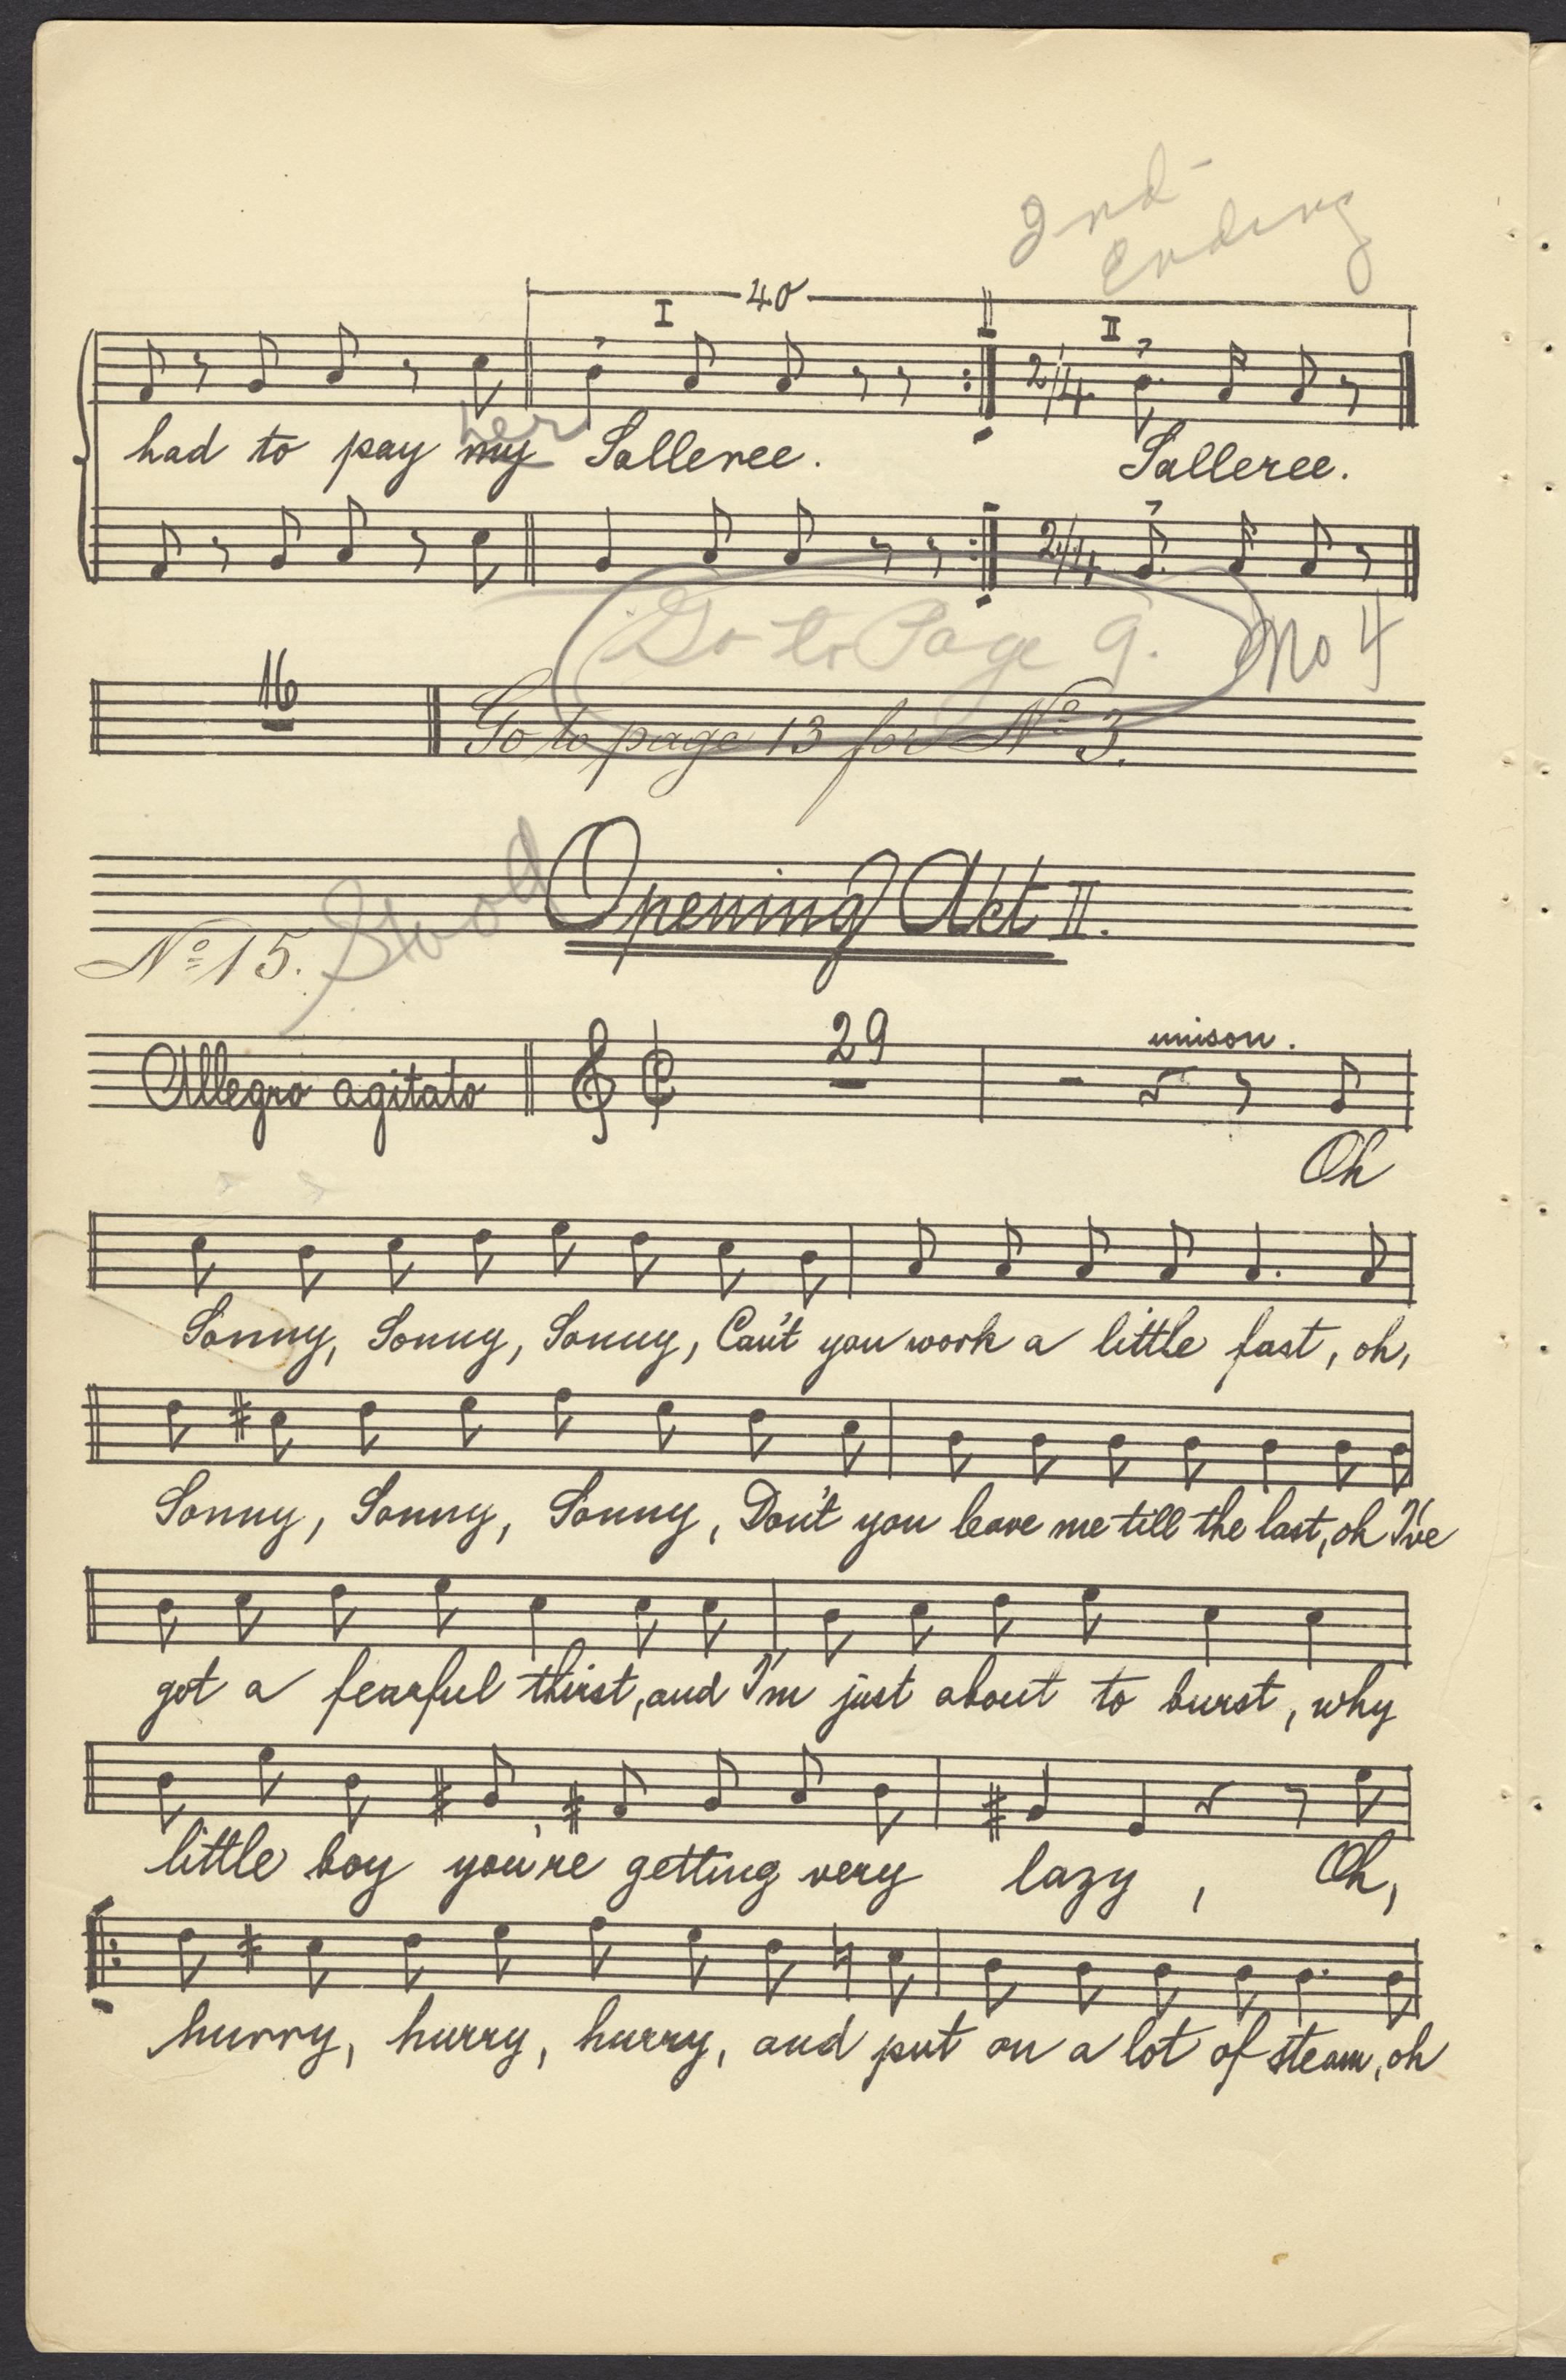 2nd
Ending
40
I II
2/4
her
had to pay my Salleree. Salleree.
2/4
Go to Page 9. No 4
16
Go to page 13 for No 3.
Opening Act II.
No 15.
29
unison.
Allegro agitato
Oh
Sonny, Sonny, Sonny, Can't you work a little fast, oh,
Sonny, Sonny, Sonny, Don't you leave me till the last, oh I've
got a fearful thirst, and I'm just about to burst, why
little boy you're getting very lazy, Oh,
hurry, hurry, hurry, and put on a lot of steam, oh